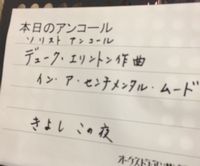 本日のアンコール
ソリストアンコール
デューク・エリントン作曲
イン・ア・センチメンタル・ムード
きよしこの夜